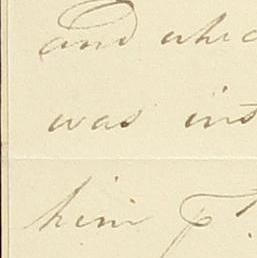 and whic
was int
him